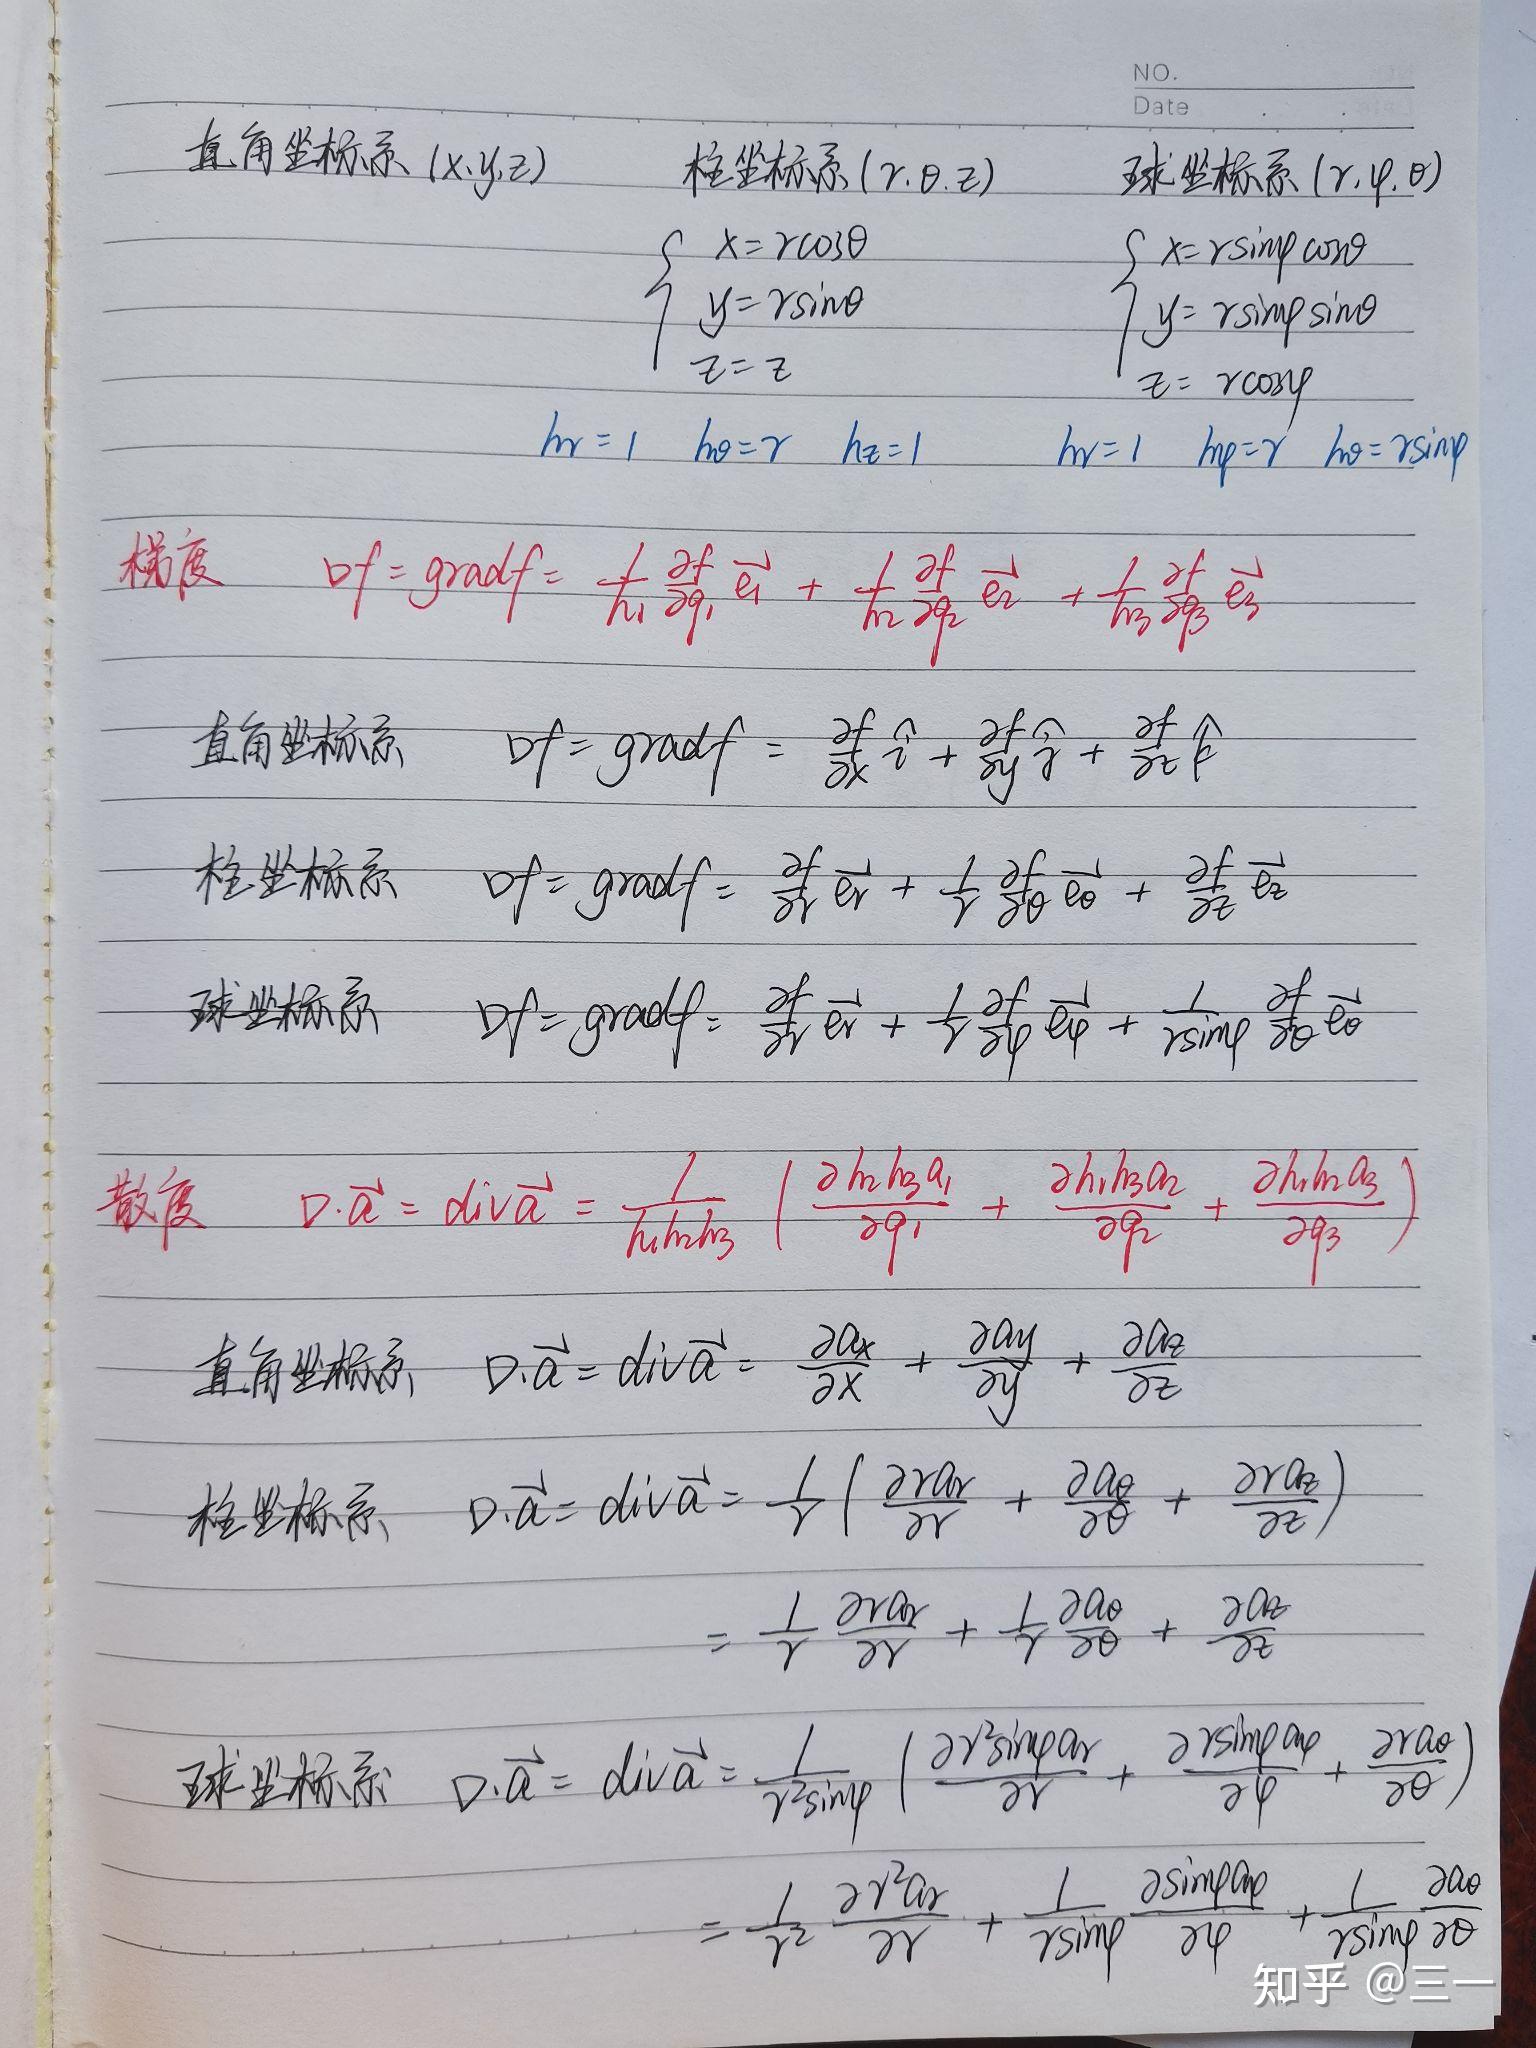 NO.
Date
直角坐标系(x.y.z) 柱坐标系(r.θ.z) 球坐标系(r.φ.θ)
x=rcosθ x=rsinφcosθ
y=rsinθ y=rsinφsinθ
z=z z=rcosφ
hr=1 hθ=r hz=1 hr=1 hφ=r hθ=rsinφ
梯度 ∇f=gradf= 1/h₁ ∂f/∂q₁ e₁⃗ + 1/h₂ ∂f/∂q₂ e₂⃗ + 1/h₃ ∂f/∂q₃ e₃⃗
直角坐标系 ∇f=gradf= ∂f/∂x î + ∂f/∂y ĵ + ∂f/∂z k̂
柱坐标系 ∇f=gradf= ∂f/∂r er⃗ + 1/r ∂f/∂θ eθ⃗ + ∂f/∂z ez⃗
球坐标系 ∇f=gradf= ∂f/∂r er⃗ + 1/r ∂f/∂φ eφ⃗ + 1/rsinφ ∂f/∂θ eθ⃗
散度 ∇·a⃗ = div a⃗ = 1/h₁h₂h₃ (∂h₂h₃a₁/∂q₁ + ∂h₁h₃a₂/∂q₂ + ∂h₁h₂a₃/∂q₃)
直角坐标系 ∇·a⃗ = div a⃗ = ∂ax/∂x + ∂ay/∂y + ∂az/∂z
柱坐标系 ∇·a⃗ = div a⃗ = 1/r (∂rar/∂r + ∂aθ/∂θ + ∂raz/∂z)
= 1/r ∂rar/∂r + 1/r ∂aθ/∂θ + ∂az/∂z
球坐标系 ∇·a⃗ = div a⃗ = 1/r²sinφ (∂r²sinφar/∂r + ∂rsinφaφ/∂φ + ∂raθ/∂θ)
= 1/r² ∂r²ar/∂r + 1/rsinφ ∂sinφaφ/∂φ + 1/rsinφ ∂aθ/∂θ
知乎 @三一